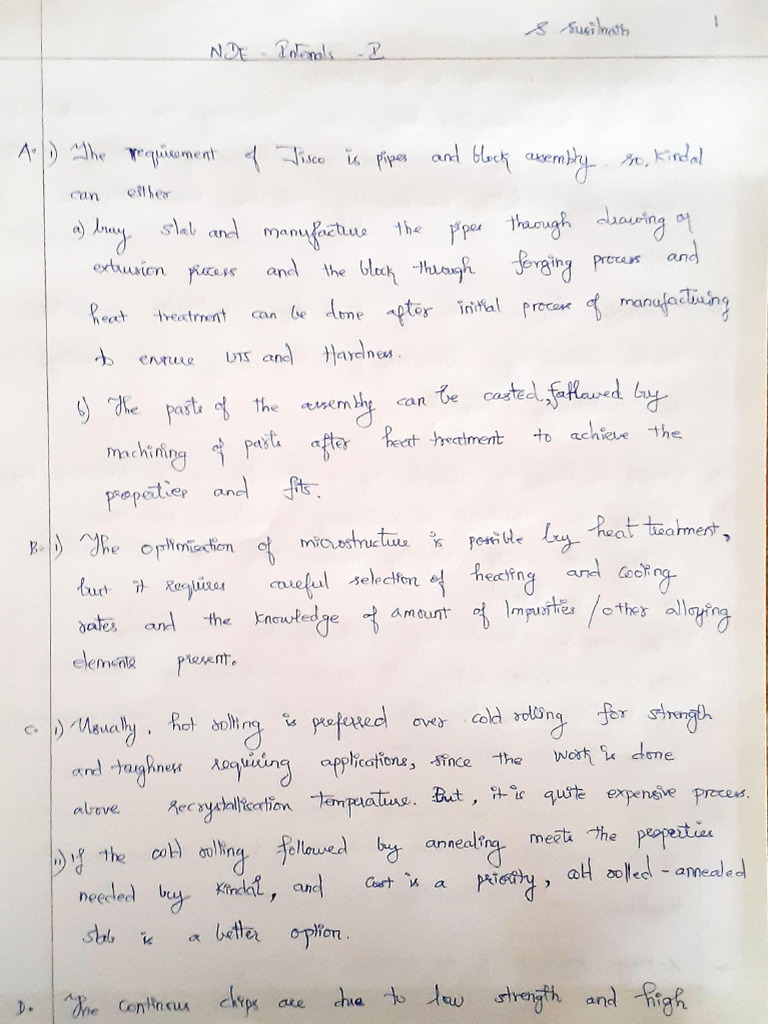 S. Susilnath 1
NDE - Internals - I
A. i) The requirement of Jisco is pipes and block assembly. so, Kindal
can either
a) buy slab and manufacture the pipes through drawing or
extrusion process and the block through forging process and
heat treatment can be done after initial process of manufacturing
to ensure UTS and Hardness.
b) The parts of the assembly can be casted, followed by
machining of parts after heat treatment to achieve the
properties and fits.
B. i) The optimisation of microstructure is possible by heat treatment,
but it requires careful selection of heating and cooling
rates and the knowledge of amount of Impurities / other alloying
elements present.
C. i) Usually, hot rolling is preferred over cold rolling for strength
and toughness requiring applications, since the work is done
above recrystallisation temperature. But, it is quite expensive process.
ii) if the cold rolling followed by annealing meets the properties
needed by Kindal, and cost is a priority, cold rolled - annealed
slab is a better option.
D. The continous chips are due to low strength and high